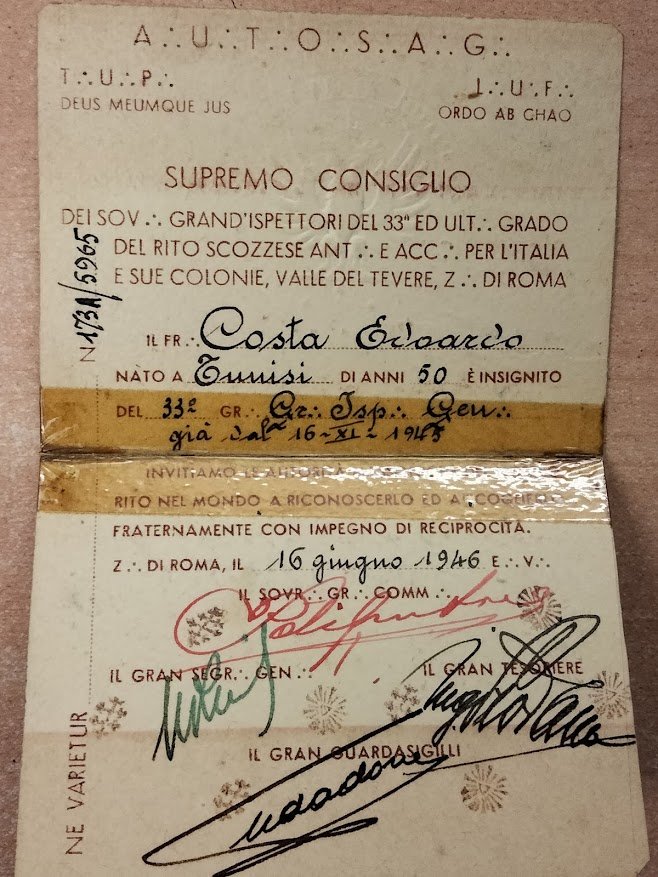 A∴U∴T∴O∴S∴A∴G∴
T∴U∴P∴
DEUS MEUMQUE JUS
I∴U∴F∴
ORDO AB CHAO
SUPREMO CONSIGLIO
DEI SOV∴ GRAND'ISPETTORI DEL 33º ED ULT∴ GRADO
DEL RITO SCOZZESE ANT∴ E ACC∴ PER L'ITALIA
E SUE COLONIE, VALLE DEL TEVERE, Z∴ DI ROMA
N 173A/5965
IL FR∴ Costa Edoardo
NATO A Tunisi DI ANNI 50 È INSIGNITO
DEL 33º GR∴ Gr∴ Isp∴ Gen∴
già dal 16-XI-1945
INVITIAMO LE AUTORITÀ
RITO NEL MONDO A RICONOSCERLO ED
FRATERNAMENTE CON IMPEGNO DI RECIPROCITÀ.
Z∴ DI ROMA, IL 16 giugno 1946 E∴ V∴
IL SOVR∴ GR∴ COMM∴
IL GRAN SEGR∴ GEN∴
IL GRAN TESORIERE
IL GRAN GUARDASIGILLI
NE VARIETUR